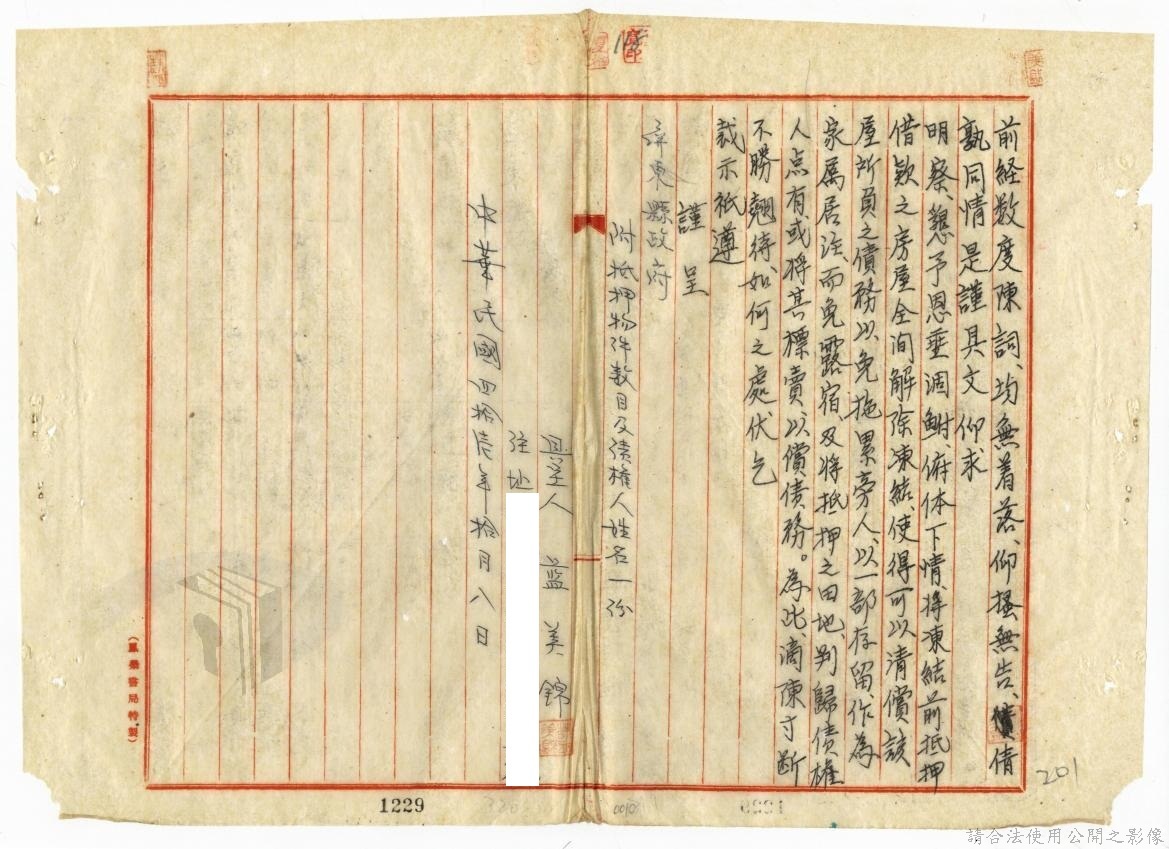 前経数度陳詞、均無着落、仰搔無告、倩
孰同情是謹具文仰求
明察、懇予恩垂涸鮒、俯体下情将凍結前抵押
借欵之房屋全间解除凍結、使得可以清償該
屋所負之債務以免拖累旁人、以一部存留、作為
家属居注、而免露宿、及将抵押之田地、判歸債権
人点有、或将其標賣以償債務。為此、滴陳寸断
不勝翹待如何之處伏乞
裁示祇遵
謹呈
屏東縣政府
附抵押物件数目及债権人姓名一份
具呈人 蓝美錦
注址
中華民國四拾壱年拾月八日
(鳳桑書局特製)
1229
201
請合法使用公開之影像